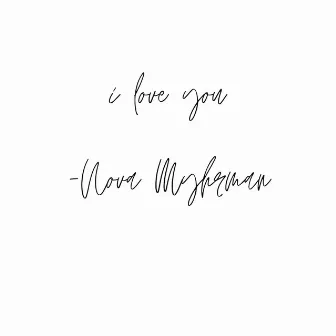 i love you
-Nova Myhrman